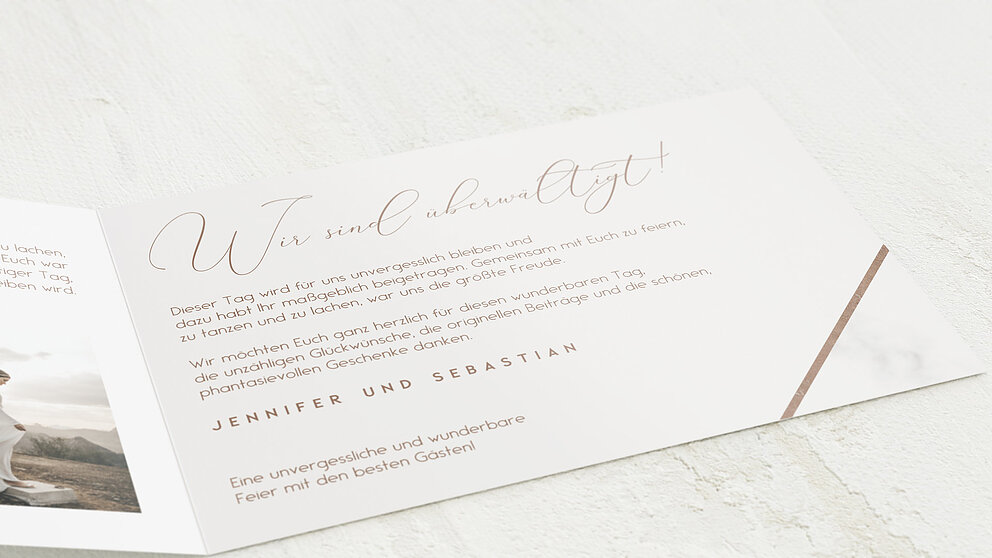 u lachen,
Euch war
iger Tag,
eiben wird.
Wir sind überwältigt!
Dieser Tag wird für uns unvergesslich bleiben und
dazu habt Ihr maßgeblich beigetragen. Gemeinsam mit Euch zu feiern,
zu tanzen und zu lachen, war uns die größte Freude.
Wir möchten Euch ganz herzlich für diesen wunderbaren Tag,
die unzähligen Glückwünsche, die originellen Beiträge und die schönen,
phantasievollen Geschenke danken.
JENNIFER UND SEBASTIAN
Eine unvergessliche und wunderbare
Feier mit den besten Gästen!